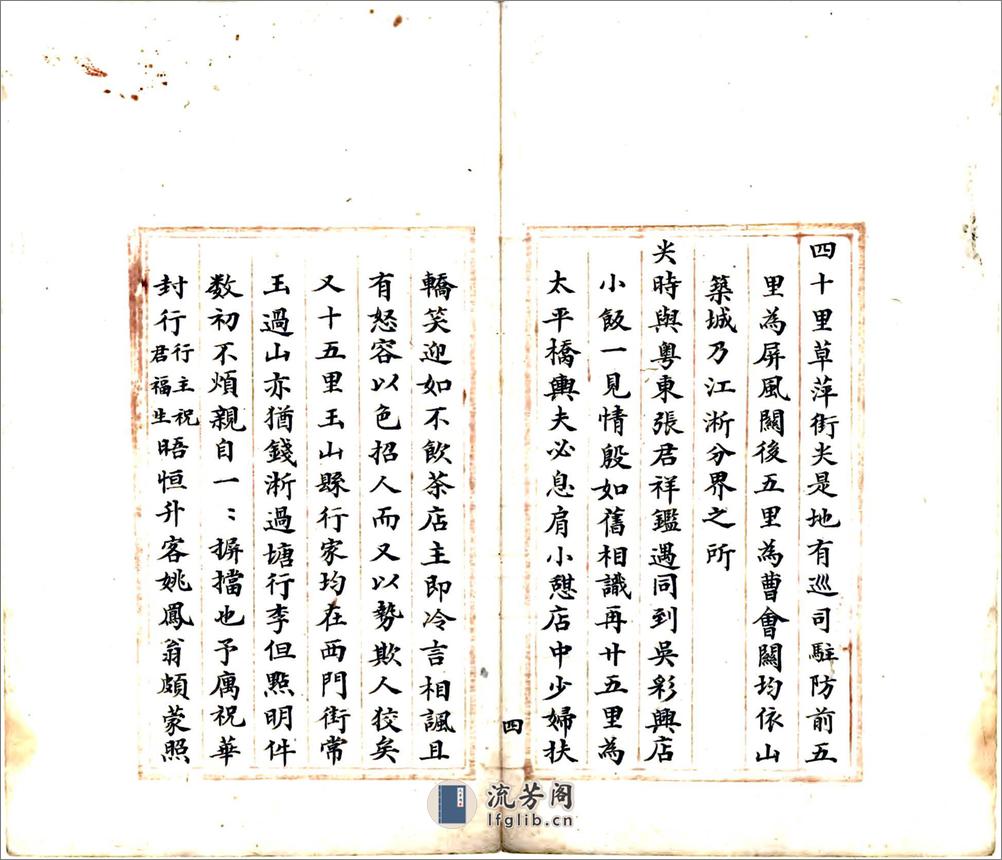 四十里草萍街尖是地有巡司駐防前五
里為屏風關後五里為曹會關均依山
築城乃江淅分界之所
尖時與粵東張君祥鑑遇同到吳彩興店
小飯一見情殷如舊相識再廿五里為
太平橋輿夫必息肩小憩店中少婦扶
四
轎笑迎如不飲茶店主即冷言相諷且
有怒容以色招人而又以勢欺人狡矣
又十五里玉山縣行家均在西門街常
玉過山亦猶錢淅過塘行李但點明件
数初不煩親自一〻摒擋也予厲祝華
封行行主祝君福生晤恒升客姚鳳翁頗蒙照
流芳阁
lfglib.cn